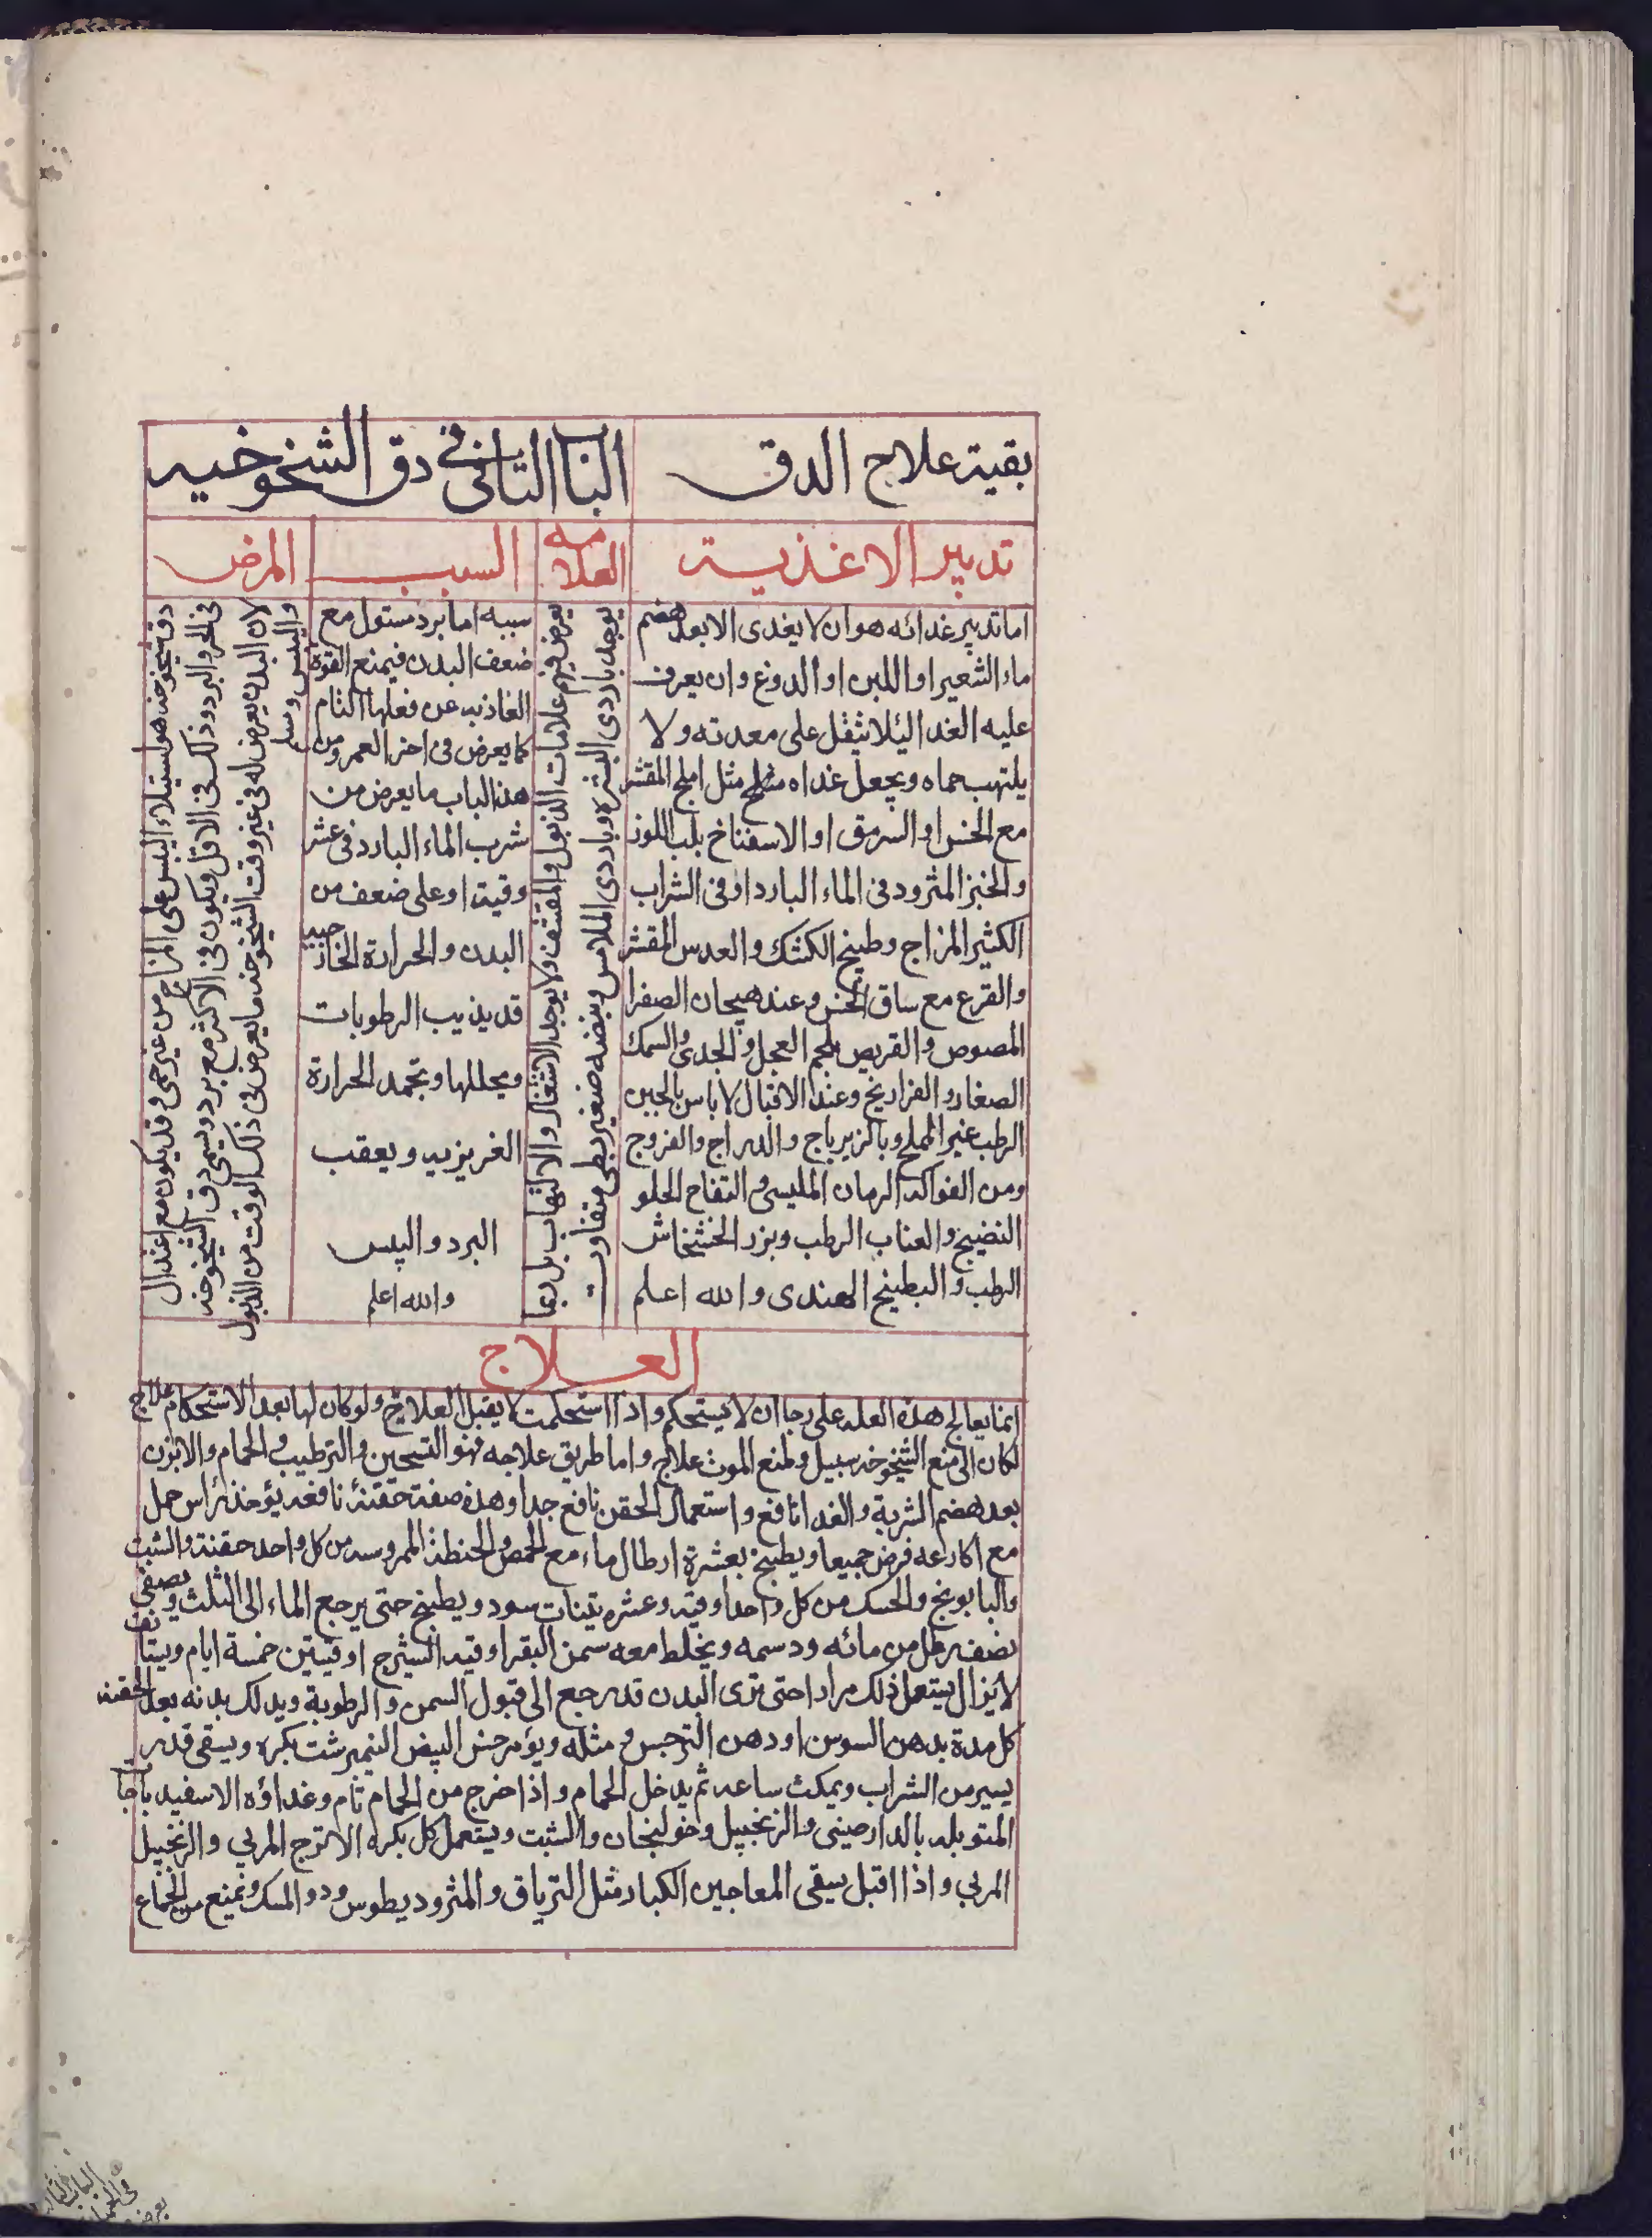 بقية علاج الدق
الباب الثانى فى دق الشيخوخيه
تدبير الاغذية
العلامه
السبب
المرض
اما تدبير غدائه هو ان لا يغدى الا بعد هضم
ماء الشعير او اللبن او الدوغ وان يعرف
عليه الغدا ليلا يثقل على معدته ولا
يلتهب حماه ويجعل غداه مثل املج المقشر
مع الخس او السرمق او الاسفناخ بلب اللوز
والخبز المثرود فى الماء البارد او فى الشراب
الكثير المزاج وطبيخ الكشك والعدس المقشر
والقرع مع ساق الخس وعند هيجان الصفرا
المصوص والقريص بلحم العجل والجدى والسمك
الصغار والفراريخ وعند الاقبال لا باس بالجبن
الرطب غير المملح وبالزيرباج والدراج والفروج
ومن الفواكه الرمان المليسى والتفاح الحلو
النضيج والعناب الرطب وبزر الخشخاش
الرطب والبطيخ الهندى والله اعلم
يعرض فيهم علامات الذبول والمقشف ولا يوجد الاشتغال والالتهاب بل ربما
يوجد باردى البشره وباردى الملامس ونبضه صغير بطى متفاوت
سببه اما برد مستول مع
ضعف البدن فيمنع القوة
الغاذيه عن فعلها التام
كما يعرض فى اخر العمر ومن
هذا الباب ما يعرض من
شرب الماء البارد فى عشر
وقيته او على ضعف من
البدن والحرارة الخارجيه
قد يذيب الرطوبات
ويحللها وتجمد الحرارة
الغريزيه ويعقب
البرد واليبس
والله اعلم
دق شيخوخه هو استيلاء اليبس على المزاج من غير حمى وقد يكون مع اعتدال
فى الحر والبرد وذلك فى الاقل ويكون فى الاكثر مع برد ويسمى دق الشيخوخه
لان البدن يعرض له فى غير وقت الشيخوخه ما يعرض فى ذلك الوقت من الذبول
واليبس
العلاج
انما يعالج هذه العله على رجا ان لا يستحكم واذا استحكمت لا يقبل العلاج ولو كان لها بعد الاستحكام علاج
لكان الى منع الشيخوخه سبيل ولمنع الموت علاج واما طريق علاجه فهو التسخين والترطيب والحمام والابزن
بعد هضم الشربة والغدا نافع واستعمال الحقن نافع جدا وهذه صفة حقنة نافعه يؤخذ راس حمل
مع اكارعه فرض جميعا ويطبخ بعشرة ارطال ماء مع الحمص والحنطة الممروسه من كل واحد حقنة والشبت
والبابونج والحسك من كل واحد اوقيه وعشره تينات سود ويطبخ حتى يرجع الماء الى الثلث ويصفى
نصف رطل من مائه ودسمه ويخلط معه سمن البقر اوقيه الشيرج اوقيتين خمسة ايام
لا يزال يستعمل ذلك مرارا حتى ترى البدن قد رجع الى قبول السمن والرطوبة ويدلك بدنه بعد الحقنه
كل مدة بدهن السوسن او دهن النرجس ومثله ويؤمر حسو البيض النيمبرشت بكره ويسقى قدر
يسير من الشراب ويمكث ساعه ثم يدخل الحمام واذا خرج من الحمام نام وغداؤه الاسفيدباجا
المتوبله بالدارصينى والزنجبيل وخولنجان والشبت ويستعمل كل بكره الاترج المربي والزنجبيل
المربي واذا اقبل يسقى المعاجين الكبار مثل الترياق والمثروديطوس ودو المسك ونمنع من الجماع